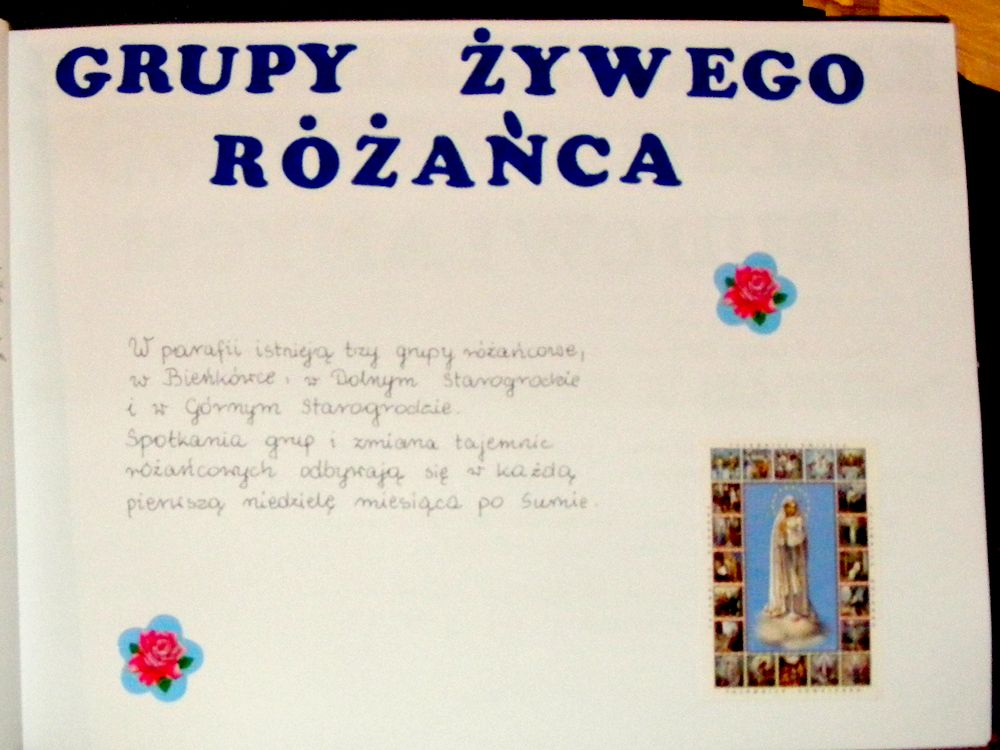 GRUPY ŻYWEGO
RÓŻAŃCA
W parafii istnieją trzy grupy różańcowe,
w Bieńkówce, w Dolnym Starogrodzie
i w Górnym Starogrodzie.
Spotkania grup i zmiana tajemnic
różańcowych odbywają się w każdą
pierwszą niedzielę miesiąca po Sumie.